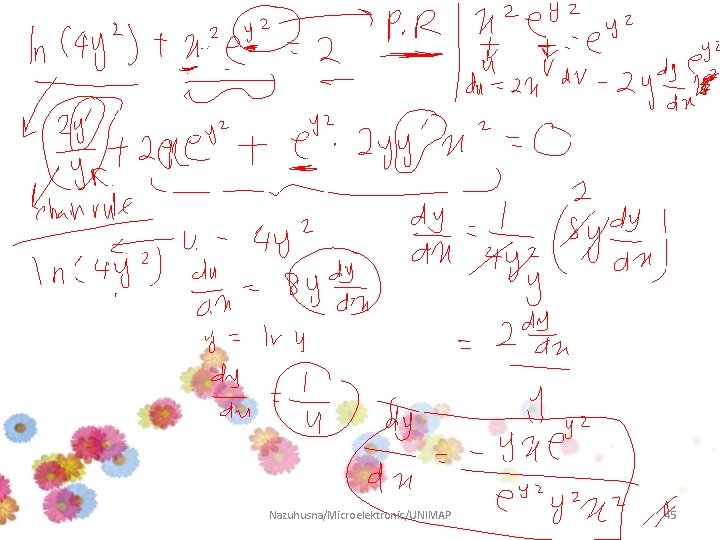 ln (4y²) + x² e^y² = 2
P.R
x² e^y²
u v = e^y²
du = 2x dv = 2y dy/dx e^y²
2y'/y + 2xe^y² + e^y² · 2yy' x² = 0
C.R.
chain rule
ln (4y²)
u = 4y²
du/dx = 8y dy/dx
y = ln u
dy/du = 1/u
dy/dx = 1/4y² (8y dy/dx)
2
y
= 2 dy/dx / y
dy/dx = - yxe^y² / e^y² y² x²
Nazuhusna/Microelektronic/UNIMAP
45